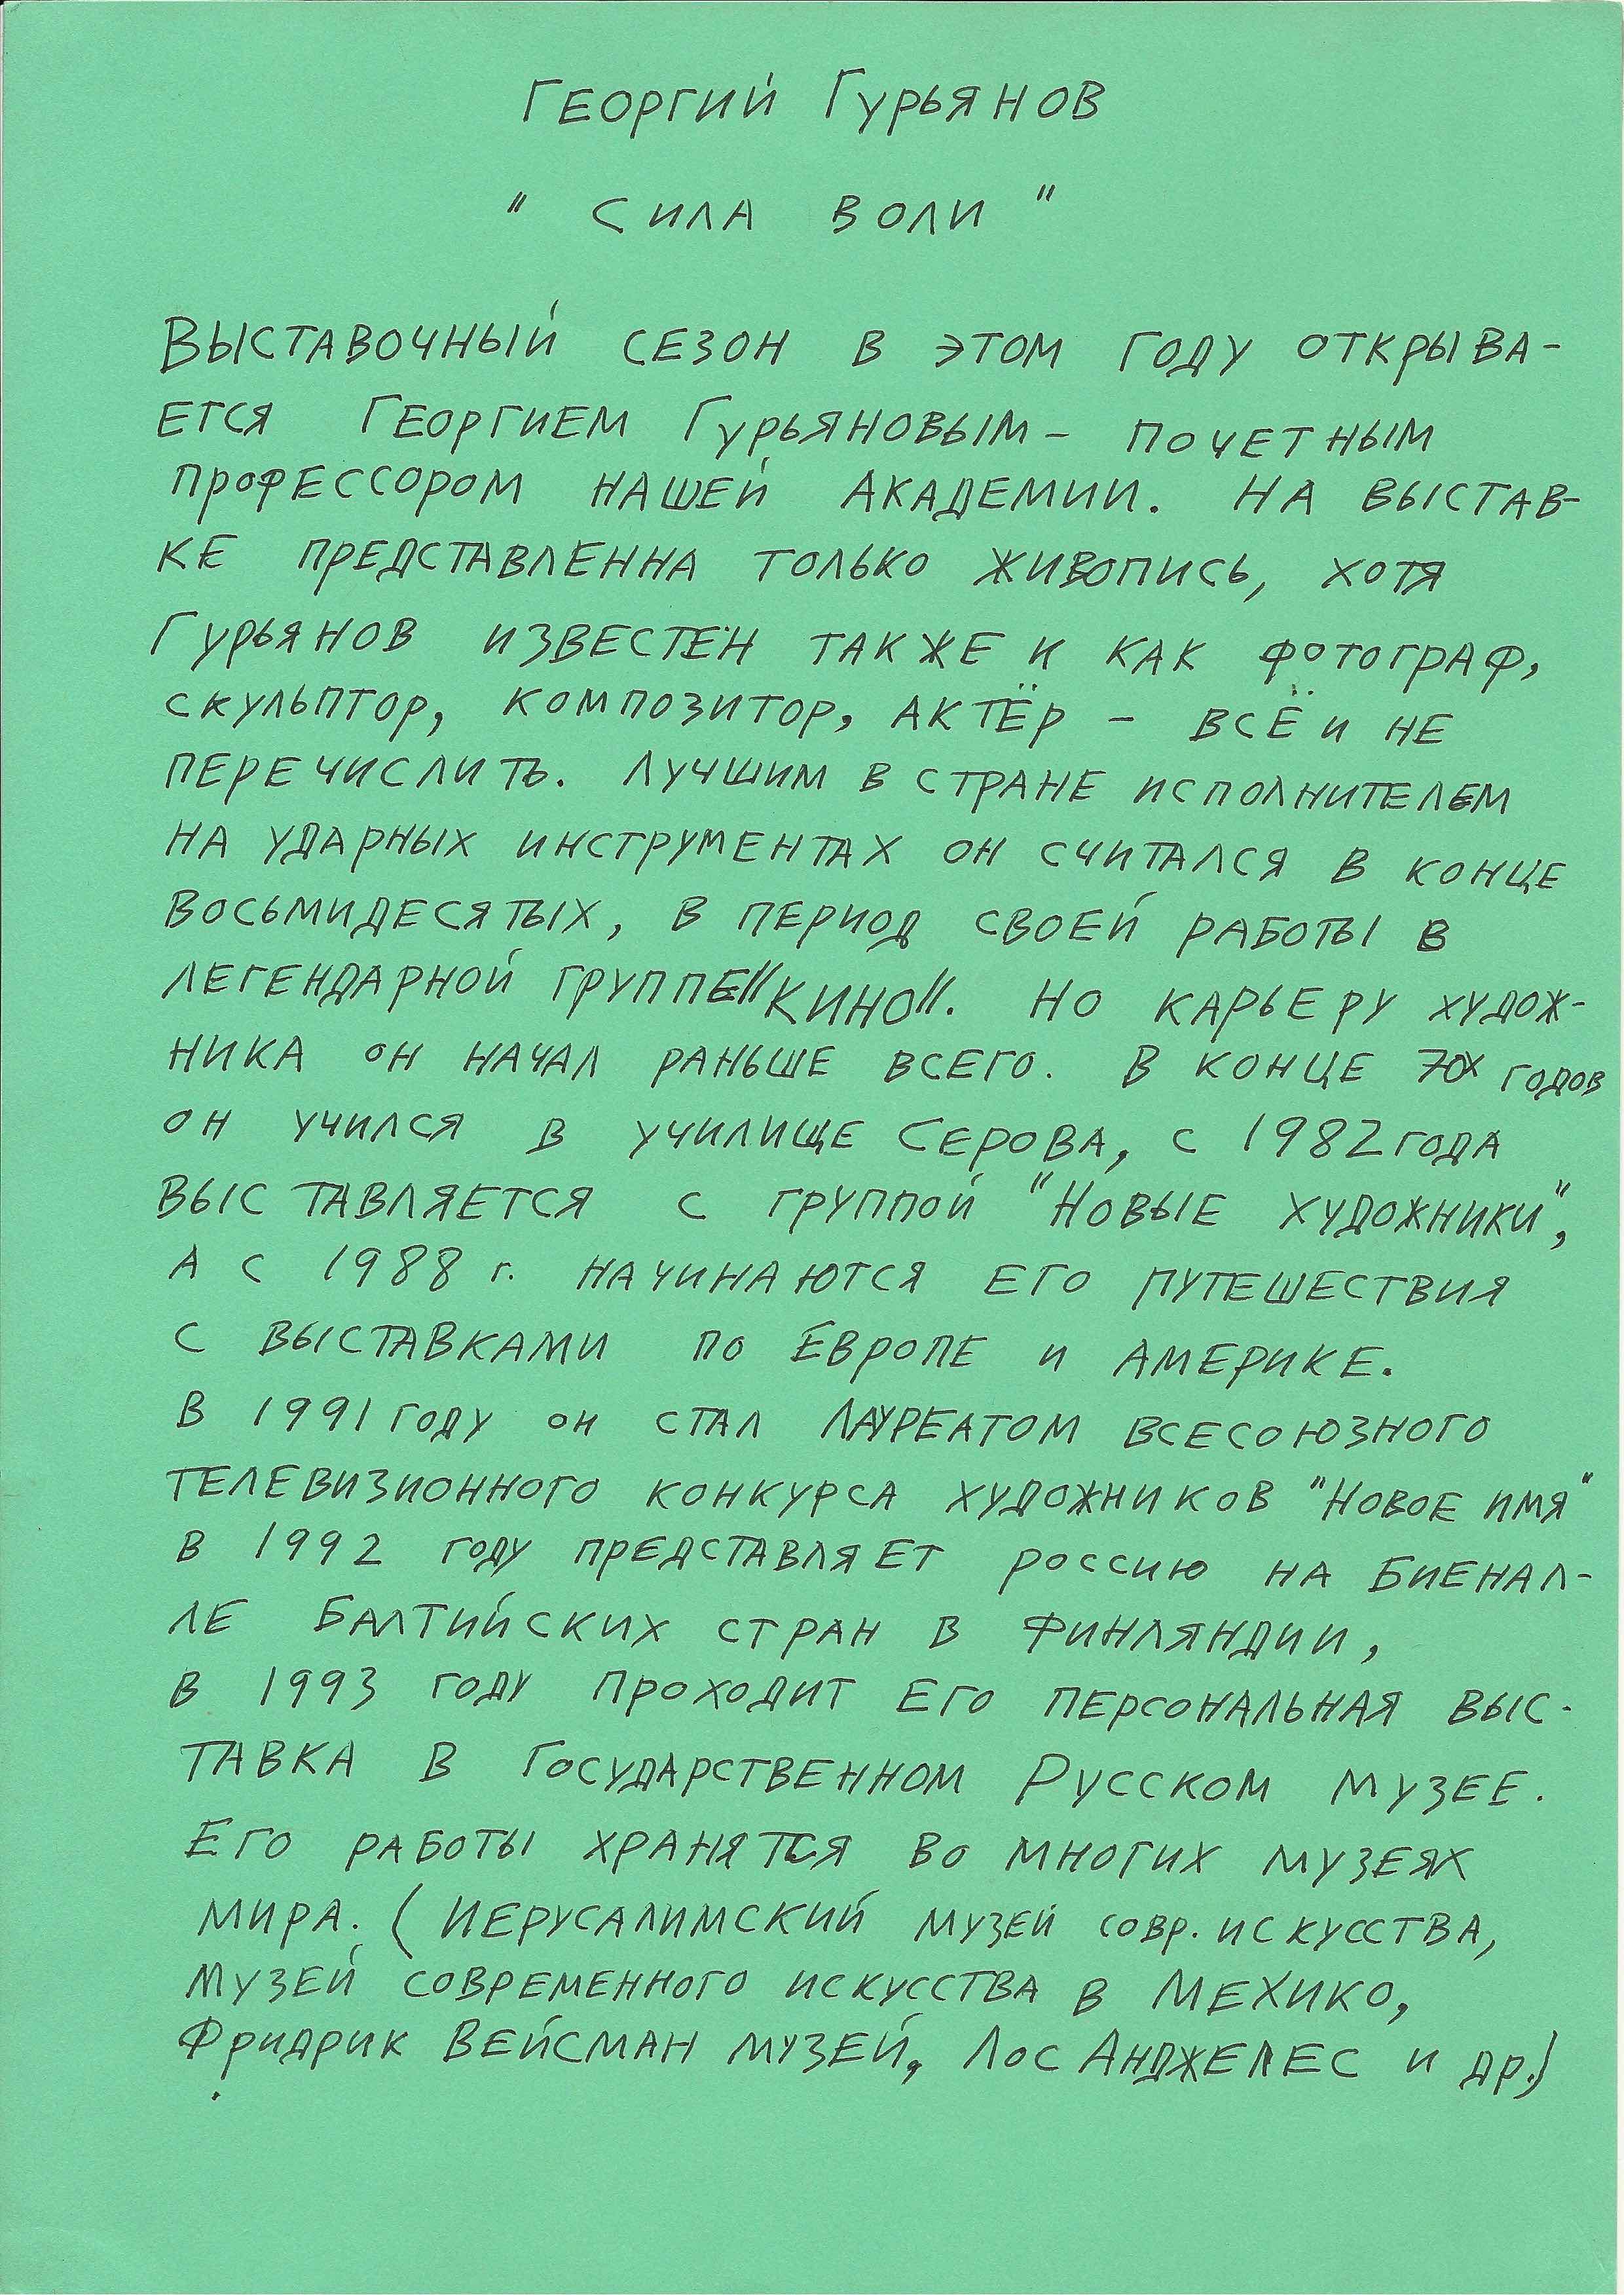 Георгий Гурьянов
" Сила воли "
Выставочный сезон в этом году открыва-
ется Георгием Гурьяновым – почетным
профессором нашей Академии. На выстав-
ке представленна только живопись, хотя
Гурьянов известен также и как фотограф,
скульптор, композитор, актёр – всё и не
перечислить. Лучшим в стране исполнителем
на ударных инструментах он считался в конце
восьмидесятых, в период своей работы в
легендарной группе "Кино". Но карьеру худож-
ника он начал раньше всего. В конце 70х годов
он учился в училище Серова, с 1982 года
выставляется с группой "Новые художники",
а с 1988 г. начинаются его путешествия
с выставками по Европе и Америке.
В 1991 году он стал лауреатом всесоюзного
телевизионного конкурса художников "Новое имя"
в 1992 году представляет россию на биенал-
ле Балтийских стран в Финляндии,
в 1993 году проходит его персональная выс-
тавка в Государственном Русском музее.
Его работы хранятся во многих музеях
мира. (Иерусалимский музей совр. искусства,
музей современного искусства в Мехико,
Фридрик Вейсман музей, Лос Анджелес и др.)